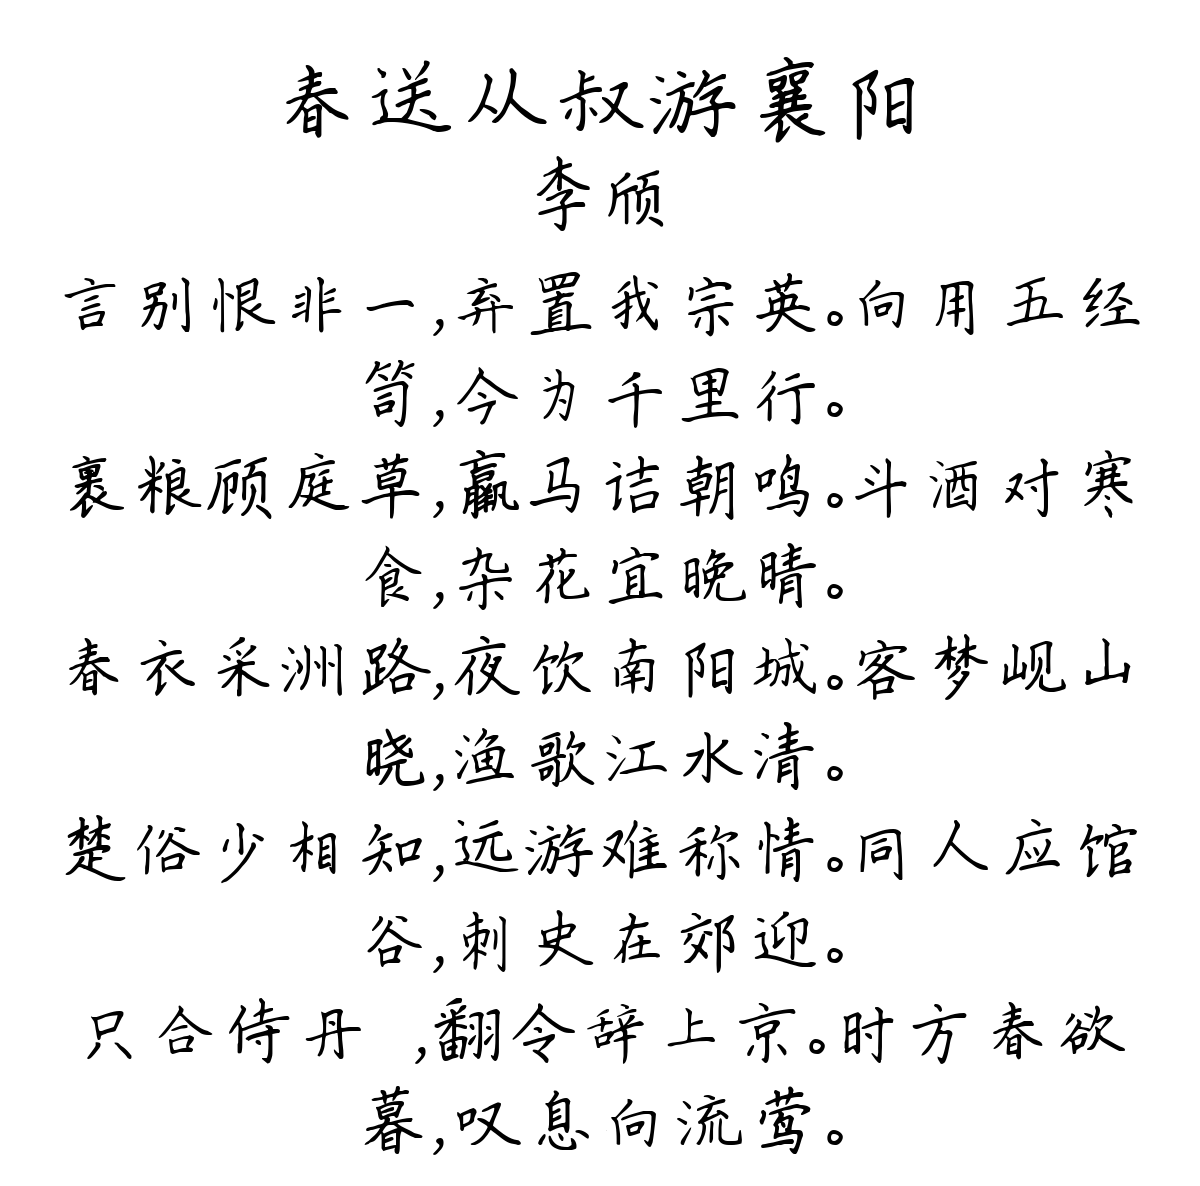 春送从叔游襄阳
李颀
言别恨非一,弃置我宗英。向用五经
笥,今为千里行。
裹粮顾庭草,羸马诘朝鸣。斗酒对寒
食,杂花宜晚晴。
春衣采洲路,夜饮南阳城。客梦岘山
晓,渔歌江水清。
楚俗少相知,远游难称情。同人应馆
谷,刺史在郊迎。
只合侍丹 ,翻令辞上京。时方春欲
暮,叹息向流莺。